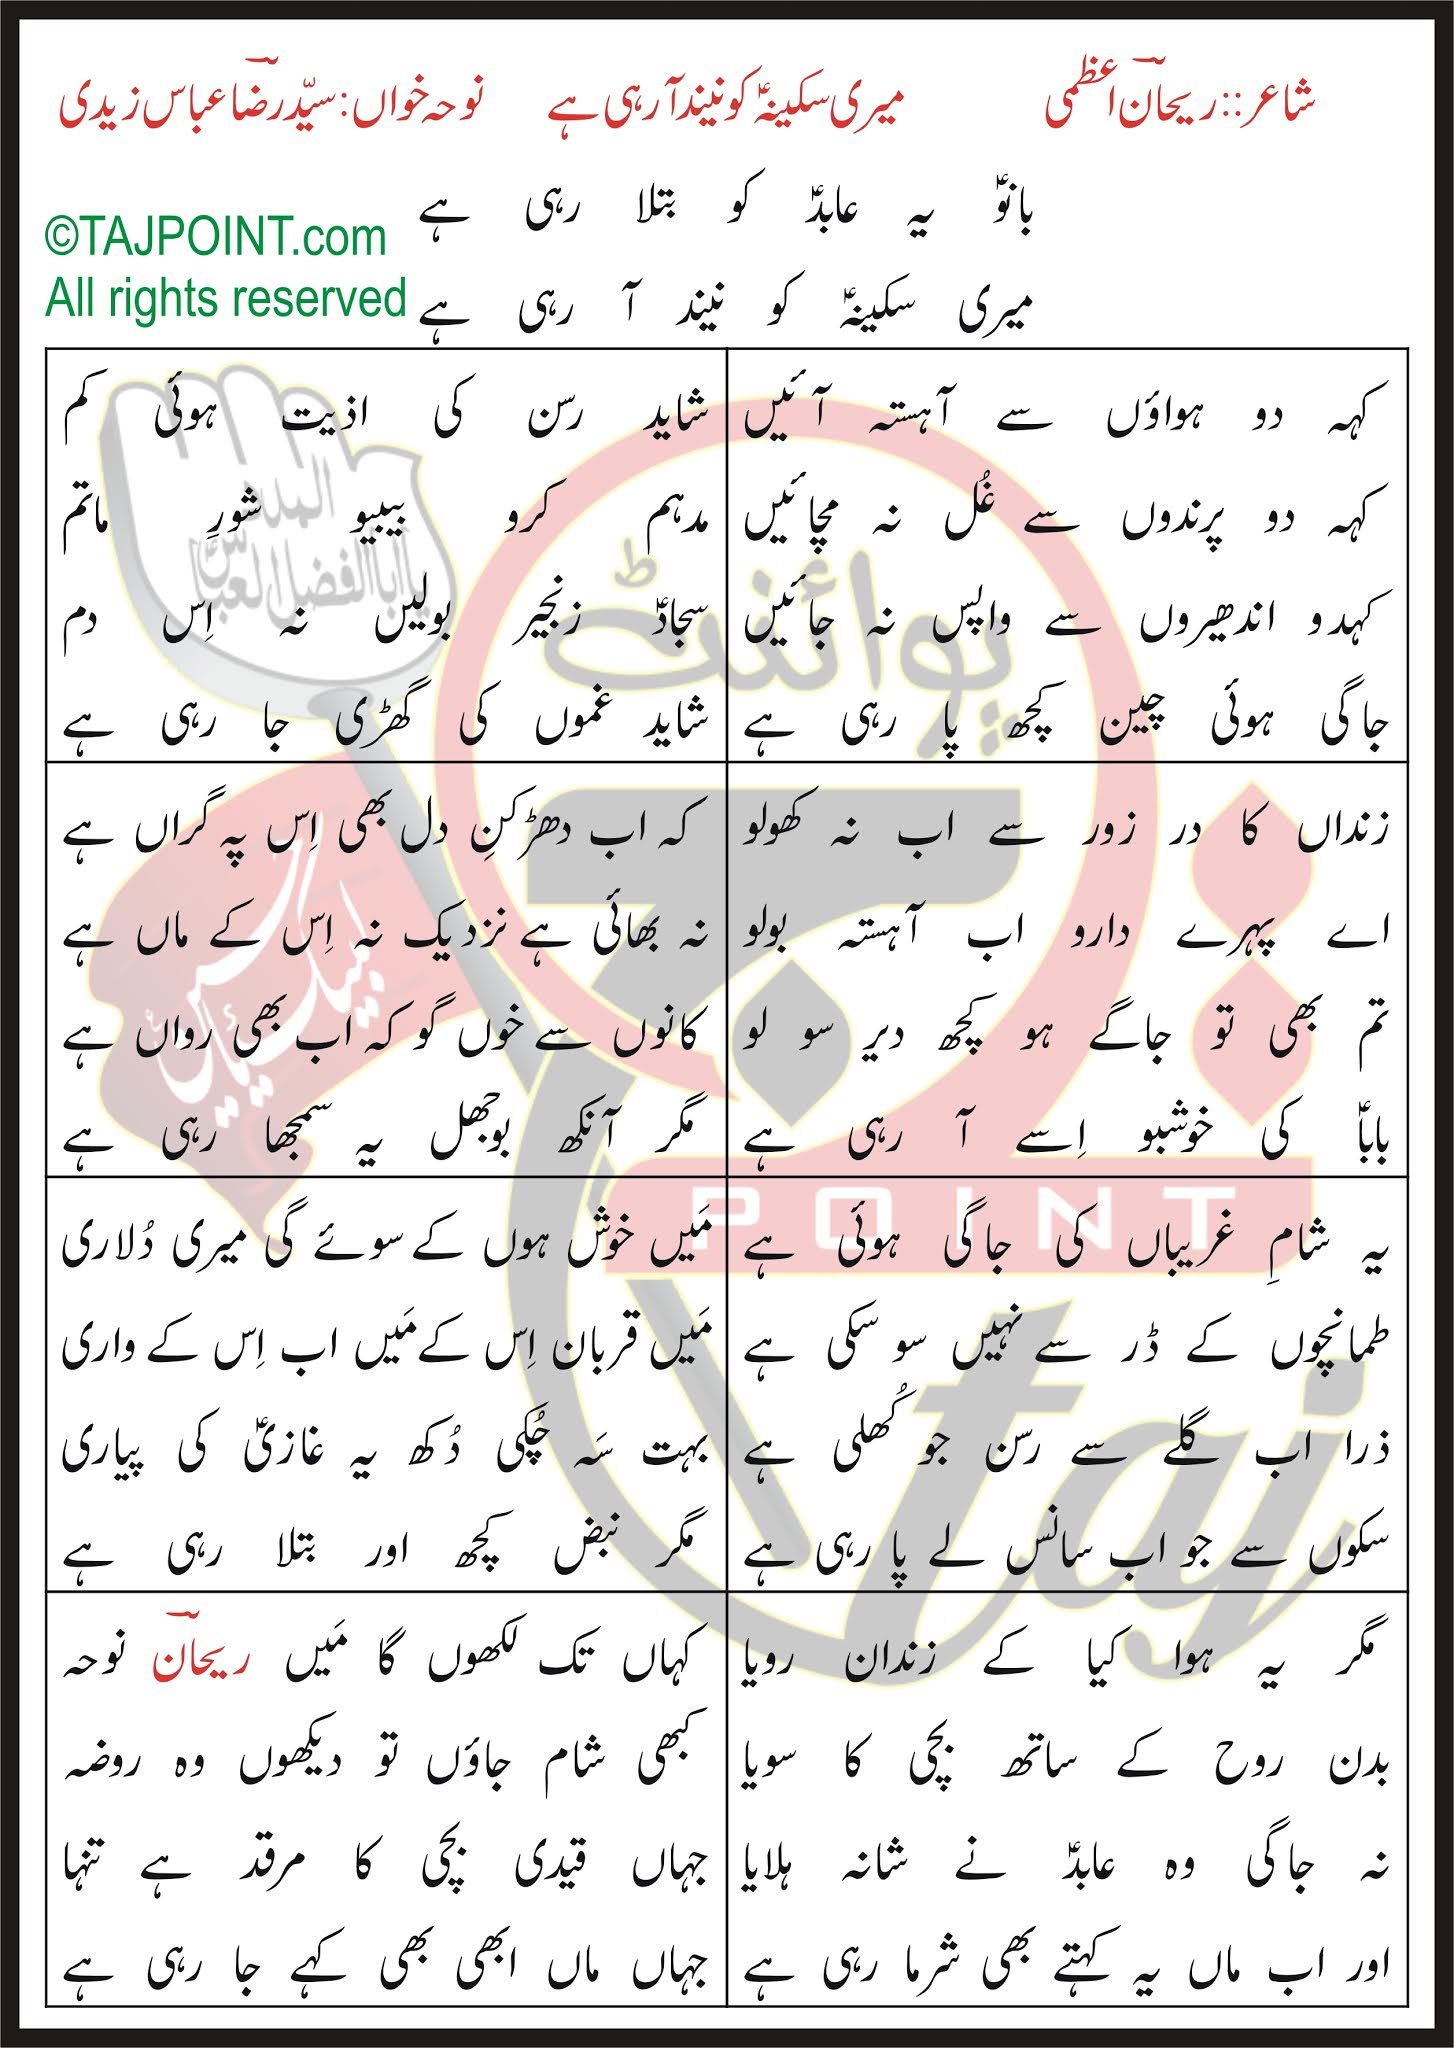 شاعر:: ریحانؔ اعظمی
میری سکینہؑ کو نیند آ رہی ہے
نوحہ خواں: سیّد رضاؔ عباس زیدی
بانوؑ یہ عابدؑ کو بتلا رہی ہے
میری سکینہؑ کو نیند آ رہی ہے
©TAJPOINT.com
All rights reserved
کہہ دو ہواؤں سے آہستہ آئیں
کہہ دو پرندوں سے غُل نہ مچائیں
کہدو اندھیروں سے واپس نہ جائیں
جاگی ہوئی چین کچھ پا رہی ہے
شاید رسن کی اذیت ہوئی کم
مدہم کرو بیبیو شورِ ماتم
سجادؑ زنجیر بولیں نہ اِس دم
شاید غموں کی گھڑی جا رہی ہے
زنداں کا در زور سے اب نہ کھولو
اے پہرے دارو اب آہستہ بولو
تم بھی تو جاگے ہو کچھ دیر سو لو
باباؑ کی خوشبو اِسے آ رہی ہے
کہ اب دھڑکنِ دل بھی اِس پہ گراں ہے
نہ بھائی ہے نزدیک نہ اِس کے ماں ہے
کانوں سے خوں گو کہ اب بھی رواں ہے
مگر آنکھ بوجھل یہ سمجھا رہی ہے
یہ شامِ غریباں کی جاگی ہوئی ہے
طمانچوں کے ڈر سے نہیں سو سکی ہے
ذرا اب گلے سے رسن جو کُھلی ہے
سکوں سے جو اب سانس لے پا رہی ہے
مَیں خوش ہوں کے سوئے گی میری دُلاری
مَیں قربان اِس کے مَیں اب اِس کے واری
بہت سَہ چُکی دُکھ یہ غازیؑ کی پیاری
مگر نبض کچھ اور بتلا رہی ہے
مگر یہ ہوا کیا کے زندان رویا
بدن روح کے ساتھ بچی کا سویا
نہ جاگی وہ عابدؑ نے شانہ ہلایا
اور اب ماں یہ کہتے بھی شرما رہی ہے
کہاں تک لکھوں گا مَیں ریحانؔ نوحہ
کبھی شام جاؤں تو دیکھوں وہ روضہ
جہاں قیدی بچی کا مرقد ہے تنہا
جہاں ماں ابھی بھی کہے جا رہی ہے
المدد
یا ابا الفضل العباس
لبیک یا حسین
پوائنٹ
تاج
POINT
taj